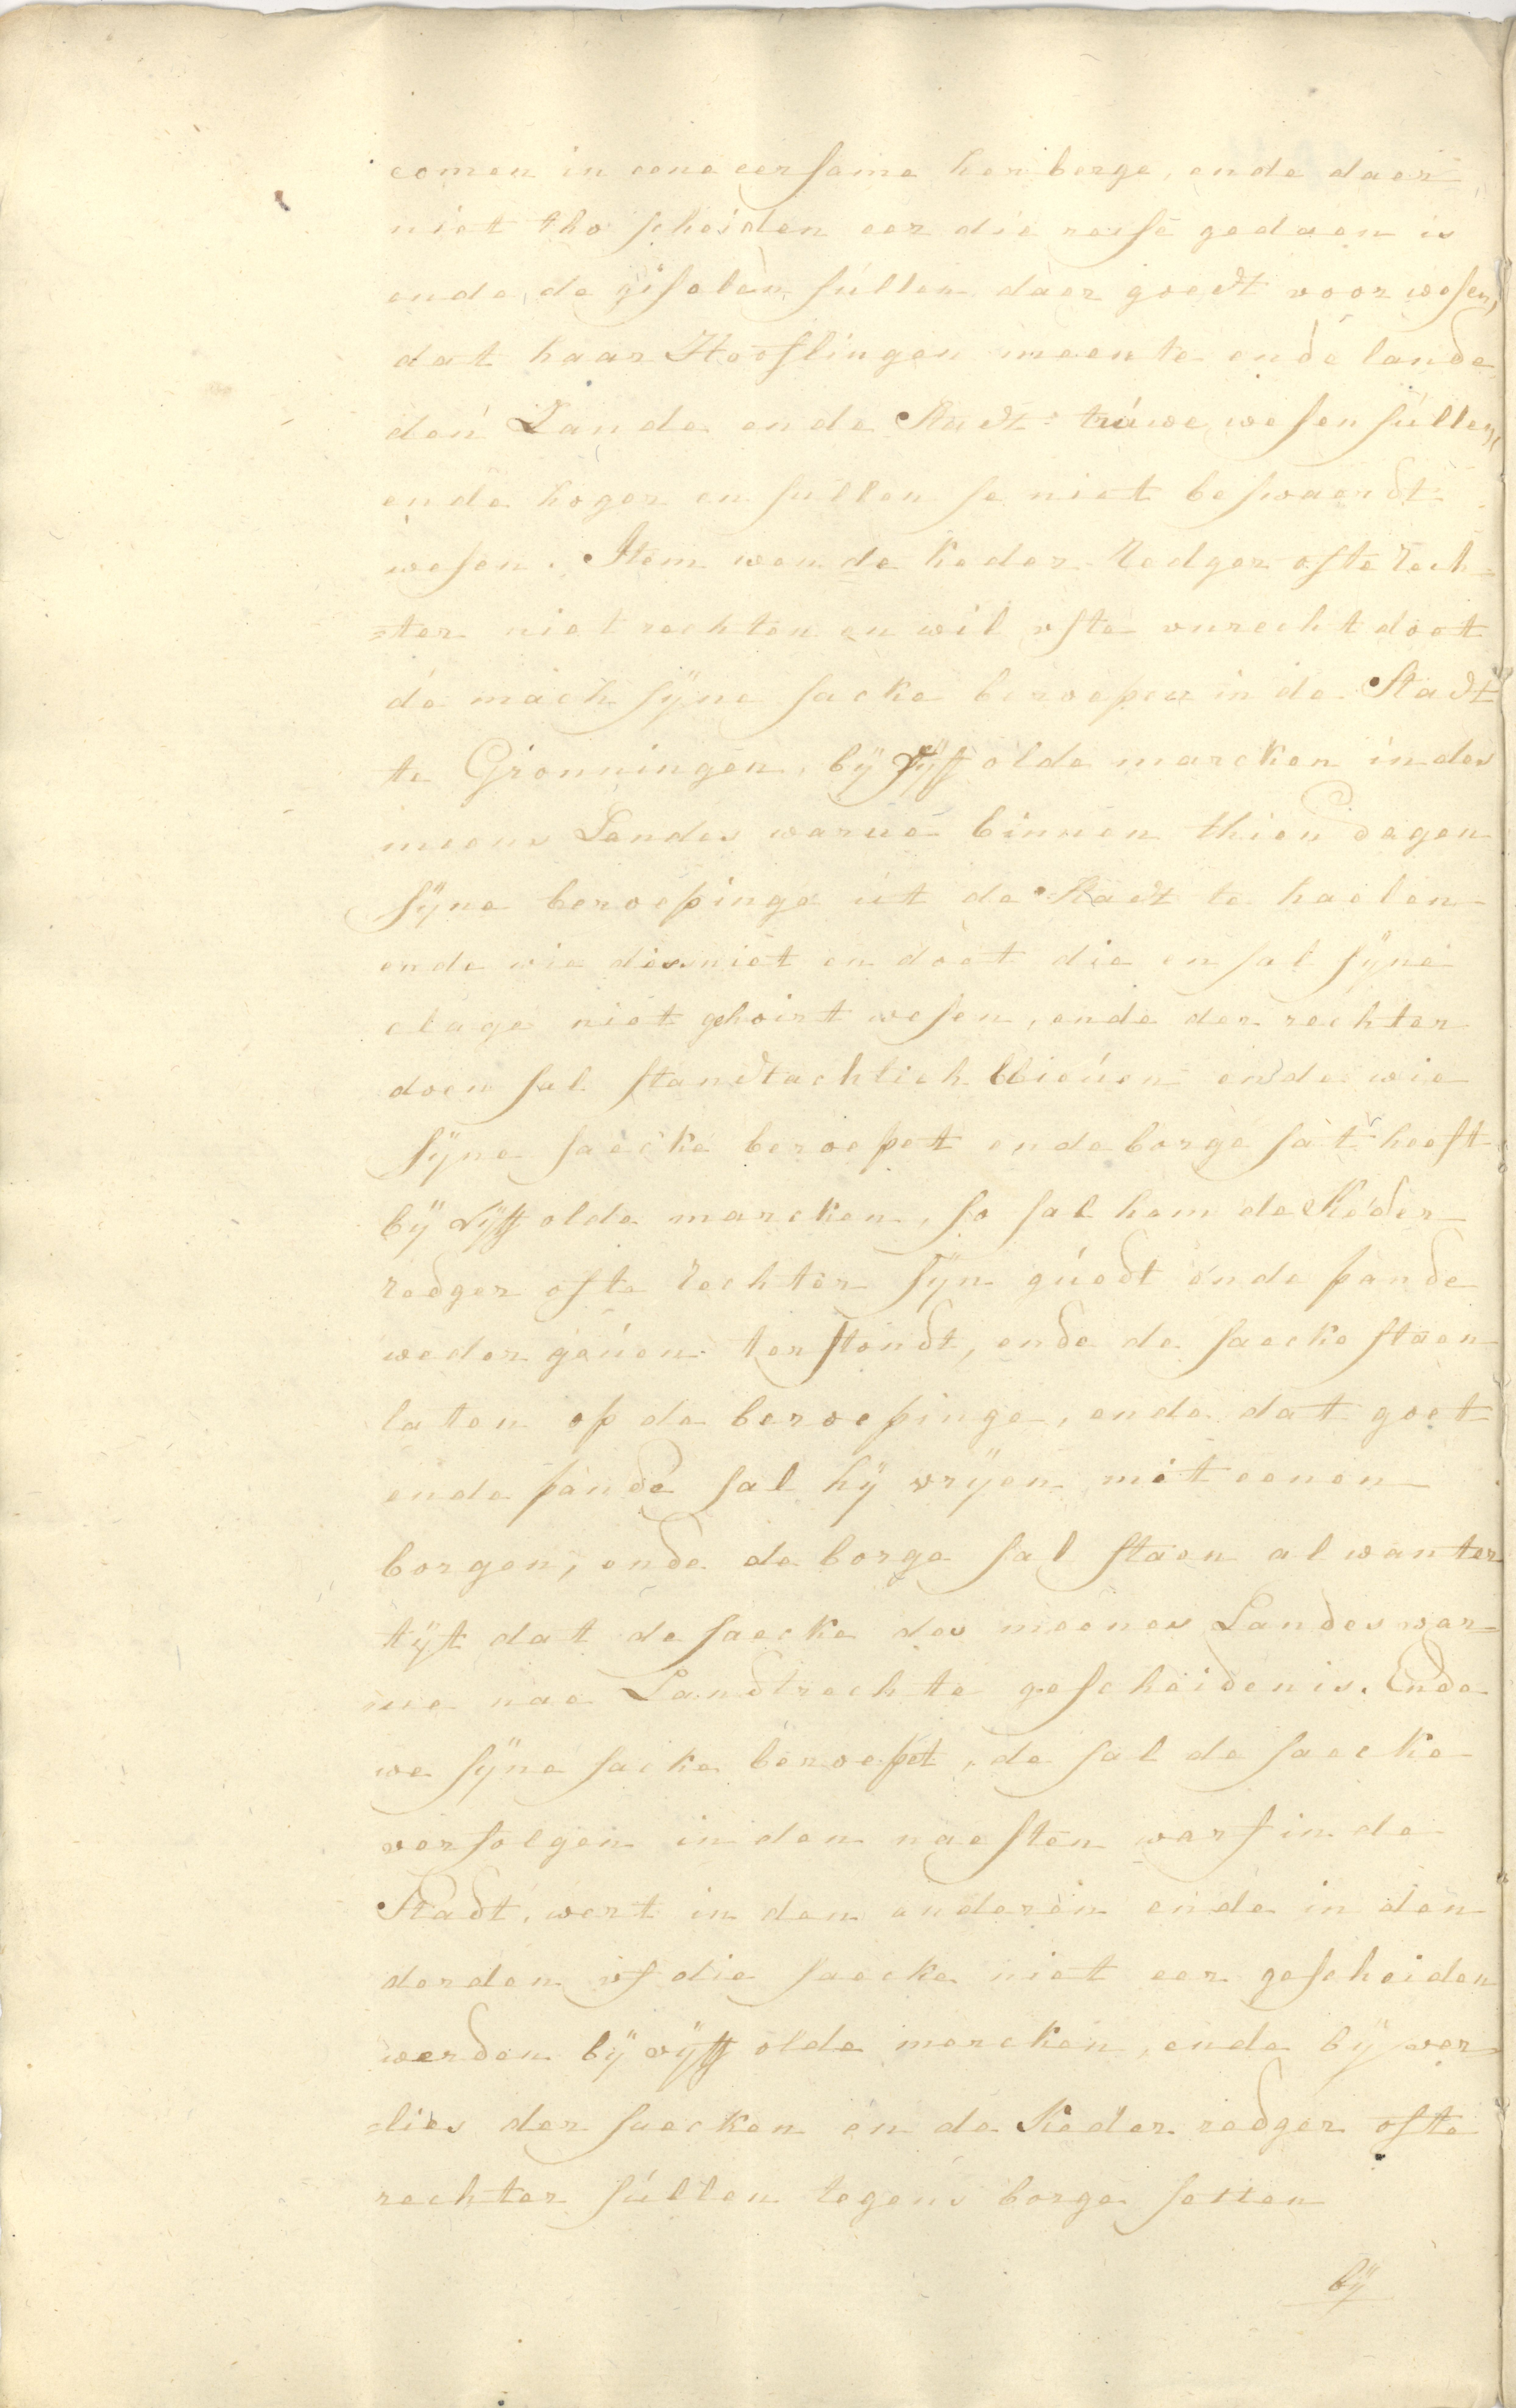 comen in eene eersame herberge, ende daer
niet tho scheiden eer die reise gedaen is
ende, de giselen súllen daer goedt voor wesen,
dat haar Hooflingen meente ende lande
den Lande ende Stadt trúwe wesen súllen,
ende hoger en sullen se niet beswaerdt
wesen. Item wen de keder redger ofte rech-
=ter niet rechten en wil ofte vnrecht doet
de mach sÿne sacke beroepen in de Stadt
te Gronningen, bÿ vÿff olde marcken in des
meens Landes warue binnen thien dagen
sÿne beroepinge út de Stadt te haelen
ende wie des niet en doet die en sal sÿne
clage niet gehoirt wesen, ende der rechter
doem sal standtachtich blieúen ende wie
sÿne saecke beroepet ende borge sat heeft
bÿ vÿff olde marcken, so sal hem de Keder
redger ofte rechter sÿn gúedt ende pande
weder geúen terstondt, ende de saecke staen
laten op de beroepinge, ende dat goet
ende pande sal hÿ vrÿen mit eenen
borgen, ende de borge sal staen al wan ter
tÿt dat de saecke des meenes Landes war-
ue nae Landtrechte gescheiden is. Ende
we sÿne sacke beroepet, de sal de saecke
verfolgen in den naesten warf in de
Stadt, wert in den anderen ende in den
derden of die saecke niet eer gescheiden
werden bÿ vÿff olde marcken, ende bÿ ver-
=lies der saecken en de Keder redger ofte
rechter súllen tegens borge setten
bÿ